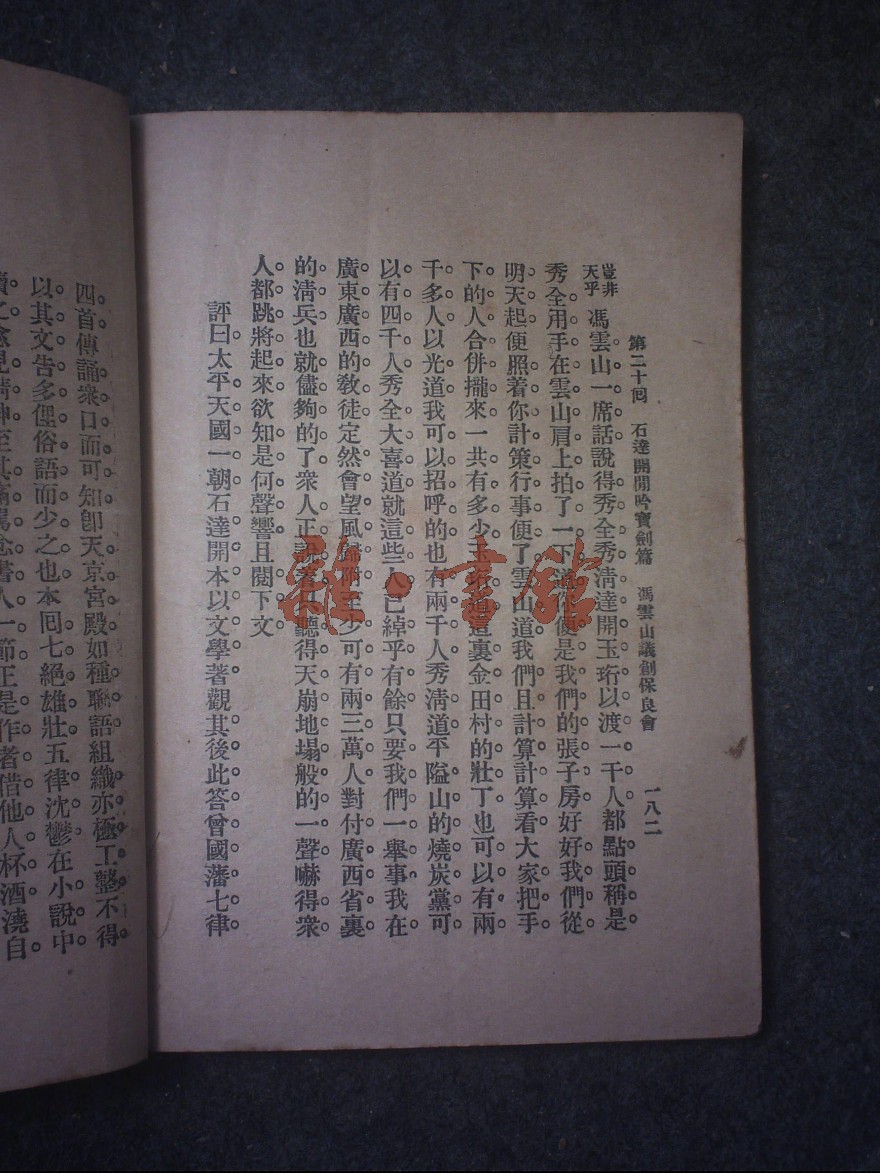 第二十回　石達開閒吟寶劍篇　馮雲山議創保良會　一八二
豈非天乎馮雲山一席話說得秀全秀清達開玉珩以渡一干人都點頭稱是
秀全用手在雲山肩上拍了一下道你便是我們的張子房好好我們從
明天起便照着你計策行事便了雲山道我們且計算計算看大家把手
下的人合併攏來一共有多少玉珩道這裏金田村的壯丁也可以有兩
千多人以光道我可以招呼的也有兩千人秀清道平隘山的燒炭黨可
以有四千人秀全大喜道就這些人已綽乎有餘只要我們一舉事我在
廣東廣西的敎徒定然會望風歸附至少可有兩三萬人對付廣西省裏
的清兵也就儘夠的了衆人正說着只聽得天崩地塌般的一聲嚇得衆
人都跳將起來欲知是何聲響且閱下文
評曰太平天國一朝石達開本以文學著觀其後此答曾國藩七律
四首傳誦衆口而可知卽天京宮殿如種聯語組織亦極工整不得
以其文告多俚俗語而少之也本回七絕雄壯五律沈鬱在小說中
讀之愈見精神至其痛罵念書人一節正是作者借他人杯酒澆自
雜·書館